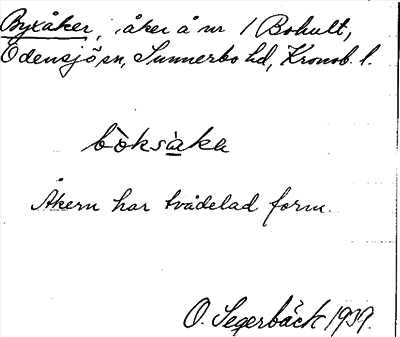 Byxåker, åker å nr 1 Bohult,
Odensjö sn, Sunnerbo hd, Kronob. l.
bòksàka
Åkern har tvådelad form.
O. Segerbäck 1939.